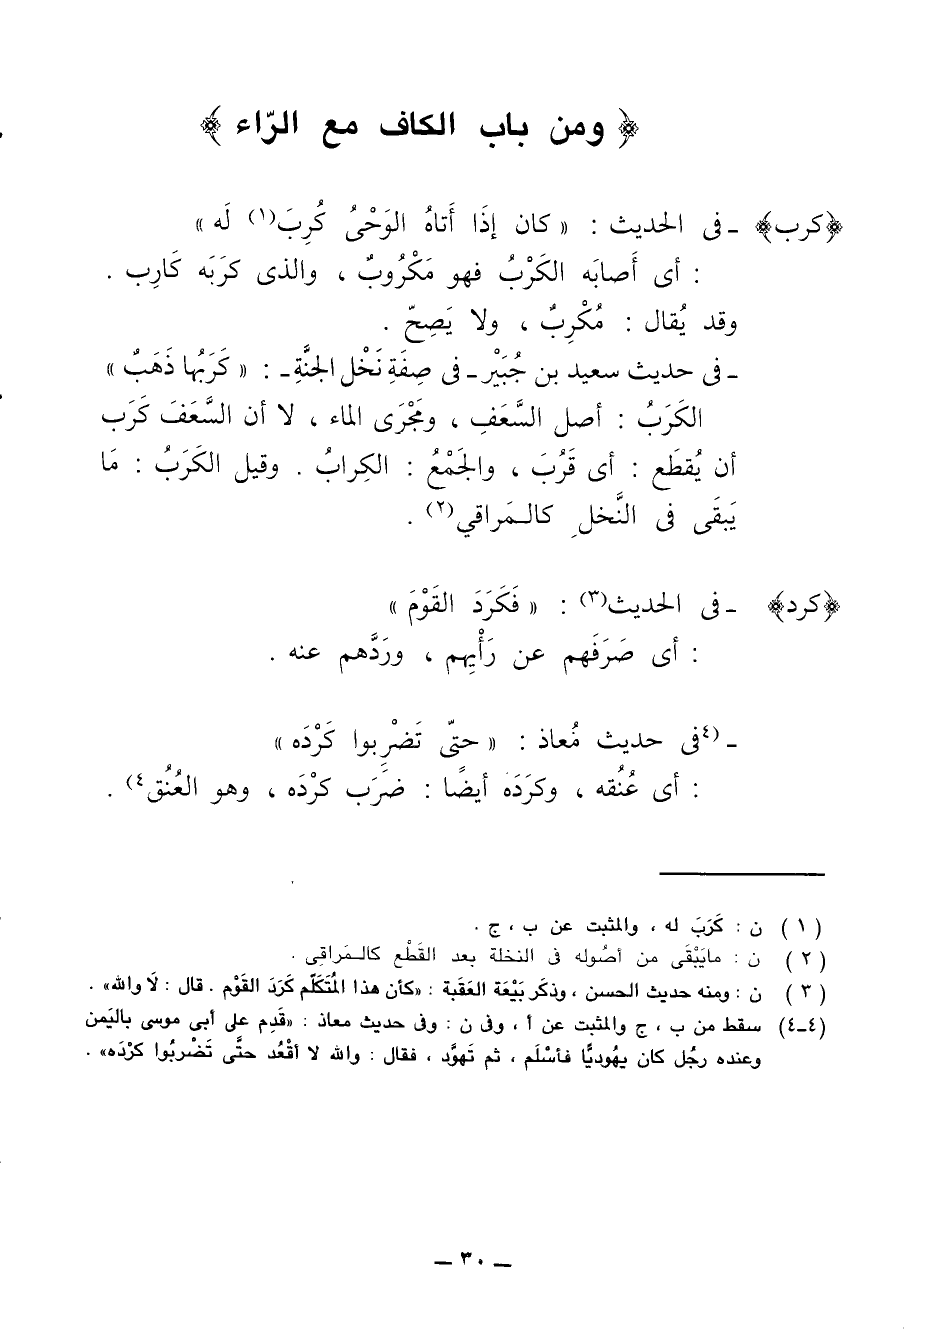 ﴿ ومن باب الكاف مع الرّاء ﴾
﴿كرب﴾ ـ فى الحديث : « كان إذَا أَتاهُ الوَحْىُ كُرِبَ(١) لَه »
: أى أَصابَه الكَرْبُ فهو مَكْرُوبٌ ، والذى كرَبَه كَارِب .
وقد يُقال : مُكْرِبٌ ، ولا يَصِحّ .
ـ فى حديث سعيد بن جُبَيْر ـ فى صِفَةِ نَخْل الجَنَّةِ ـ : « كَرَبُها ذَهَبٌ »
الكَرَبُ : أصل السَّعَفِ ، ومَجْرَى الماء ، لا أن السَّعَفَ كَرَب
أن يُقطَع : أى قَرُبَ ، والجَمْعُ : الكِرابُ . وقيل الكَرَبُ : مَا
يَبقَى فى النَّخلِ كالـمَراقي(٢) .
﴿كرد﴾ ـ فى الحديث(٣) : « فَكَرَدَ القَوْمَ »
: أى صَرَفَهم عن رَأْيِهم ، وردَّهم عنه .
ـ (٤فى حديث مُعاذ : « حتّى تَضْرِبوا كَرْدَه »
: أى عُنُقه ، وكرَدَه أيضًا : ضَرَب كرْدَه ، وهو العُنُق٤) .
(١) ن : كَرَبَ له ، والمثبت عن ب ، ج .
(٢) ن : مايَبْقَى من أصُوله فى النخلة بعد القَطْع كالـمَراقِى .
(٣) ن : ومنه حديث الحسن ، وذكَر بَيْعَة العَقَبة : «كأن هذا المُتَكَلِّم كَرَدَ القَوْم . قال : لَا والله» .
(٤ـ٤) سقط من ب ، ج والمثبت عن أ ، وفى ن : وفى حديث معاذ : «قَدِم على أبى موسى باليَمن
وعنده رجُل كان يهُوديًّا فأسْلَم ، ثم تَهوَّد ، فقال : والله لا أقْعُد حتَّى تَضْربُوا كرْدَه» .
ـ ٣٠ ـ